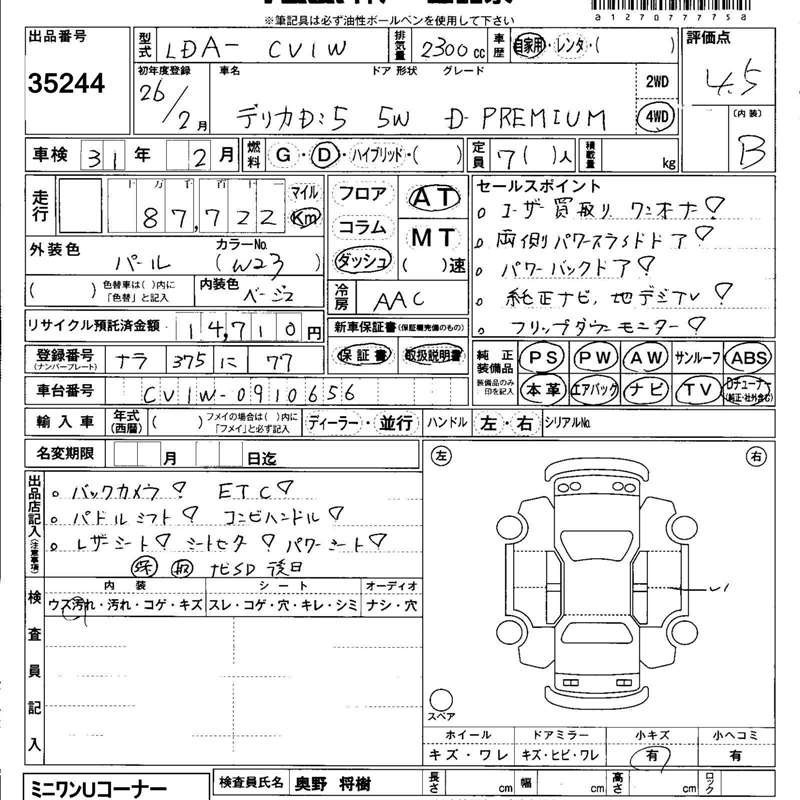 ※筆記具は必ず油性ボールペンを使用して下さい
a127077775a
出品番号 35244
型式 LDA- CV1W 排気量 2300cc 車歴 自家用・レンタ・( )
評価点 4.5
初年度登録 26/2月 車名 デリカD:5 ドア 形状 5W グレード D-PREMIUM 2WD 4WD
(内装) B
車検 31年 2月 燃料 G・D・ハイブリッド・( ) 定員 7( )人 積載量 kg
走行 十万千百十一 87,722 マイル Km
フロア コラム ダッシュ
AT MT ( )速
セールスポイント
。ユーザー買取り ワンオーナー!
。両側パワースライドドア!
。パワーバックドア!
。純正ナビ、地デジTV!
。フリップダウンモニター!
外装色 パール カラーNo. (W23)
( ) 色替車は( )内に「色替」と記入 内装色 ベージュ
冷房 AAC
リサイクル預託済金額 14,710円
新車保証書(保証継続のもの) 保証書 取扱説明書
登録番号(ナンバープレート) ナラ 375 に 77
純正装備品 装備品のみ印を記入 PS PW AW サンルーフ ABS
本革 エアバッグ ナビ TV Dチューナー(純正・社外含む)
車台番号 CV1W-0910656
輸入車 年式(西暦) ( ) フメイの場合は( )内に「フメイ」と必ず記入 ディーラー・並行 ハンドル 左・右 シリアルNo.
名変期限 月 日迄
出品店記入(注意事項)
。バックカメラ! ETC!
。パドルシフト! コンビハンドル!
。レザーシート! シートヒーター! パワーシート!
保 取 ナビSD 後日
左 右
検査員記入
内装 シート オーディオ
ウス汚れ・汚れ・コゲ・キズ スレ・コゲ・穴・キレ・シミ ナシ・穴
スペア
ホイール ドアミラー 小キズ 小ヘコミ
キズ・ワレ キズ・ヒビ・ワレ 有 有
ミニワンUコーナー 検査員氏名 奥野 将樹 長さ cm 幅 cm 高さ cm ロック